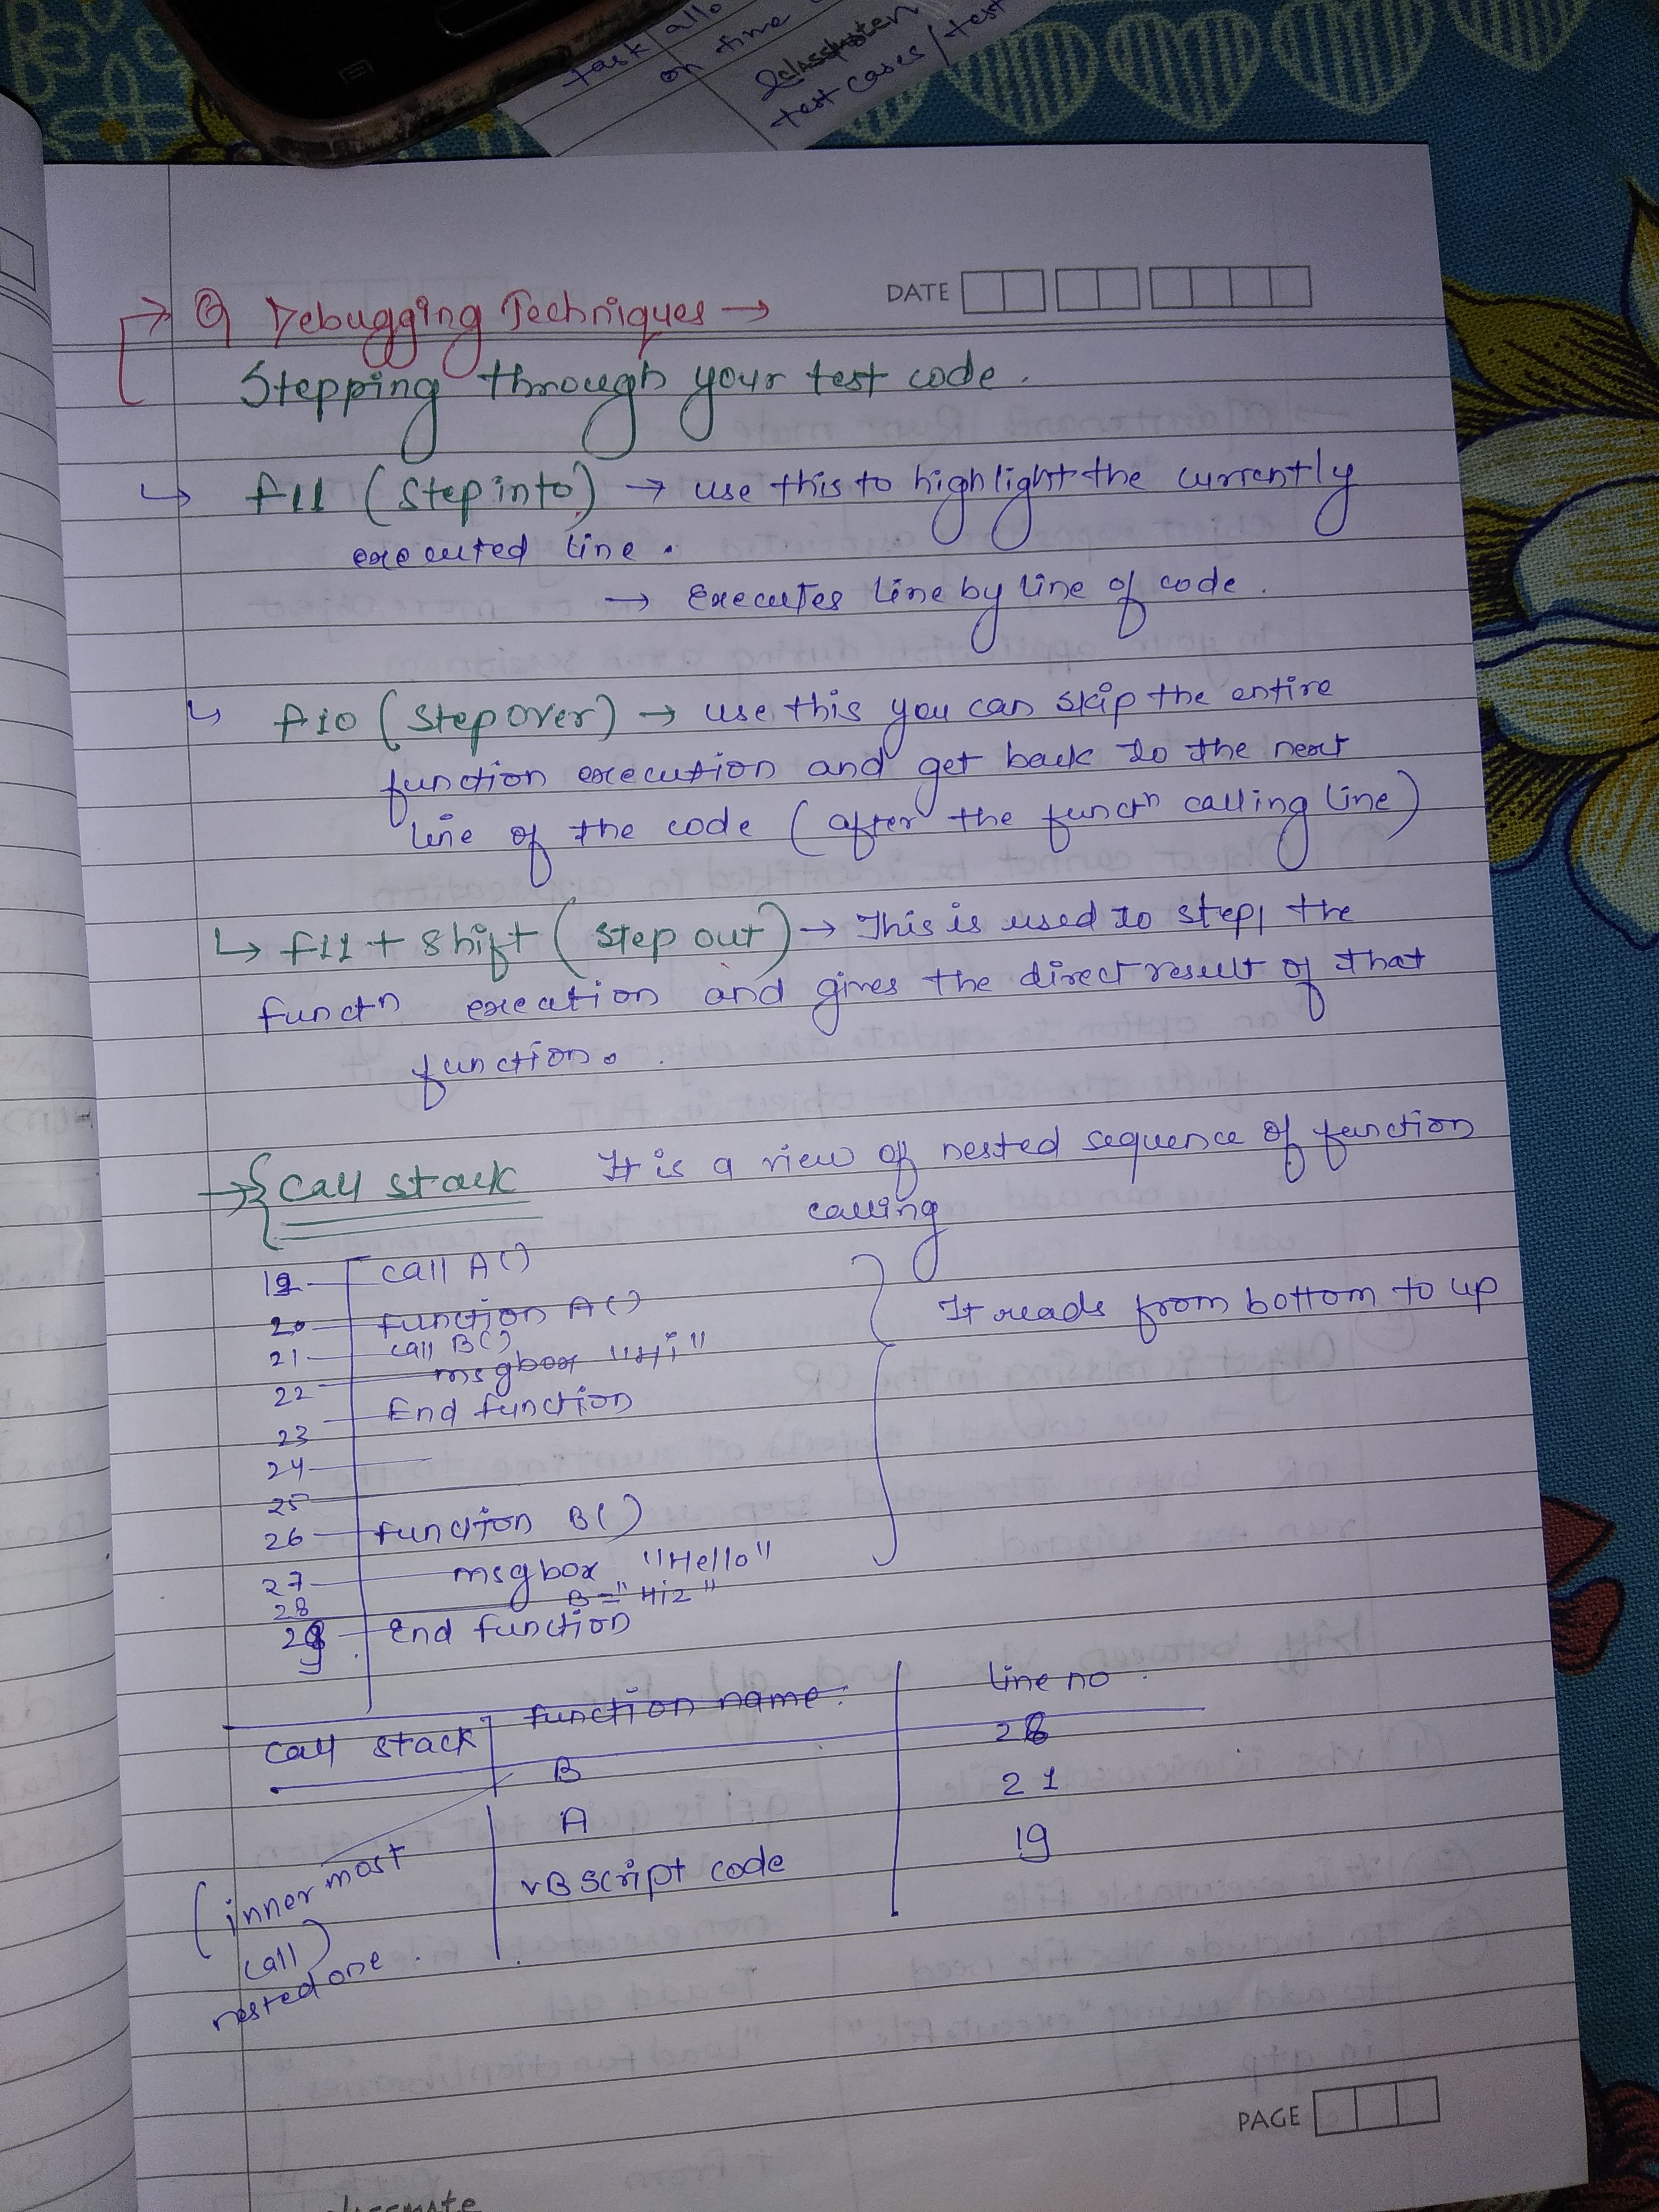 task allo
on time
classmaten
test cases / test
DATE
→ Q Debugging Techniques →
Stepping through your test code.
↳ f11 (Step into) → use this to highlight the currently
executed line.
→ Executes line by line of code.
↳ f10 (step over) → use this you can skip the entire
function execution and get back to the next
line of the code (after the functn calling line)
↳ f11 + shift (step out) → This is used to step, the
functn execution and gives the direct result of that
function.
→ { Call stack It is a view of nested sequence of function
calling
19 call A()
20 function A()
It reads from bottom to up
21 call B()
22 msgbox "Hi"
23 End function
24
25
26 function B()
27 msgbox "Hello"
28 B = "Hiz"
29 End function
call stack function name. line no.
B 28
A 21
VB script code 19
(inner most
call)
nested one.
PAGE
classmate